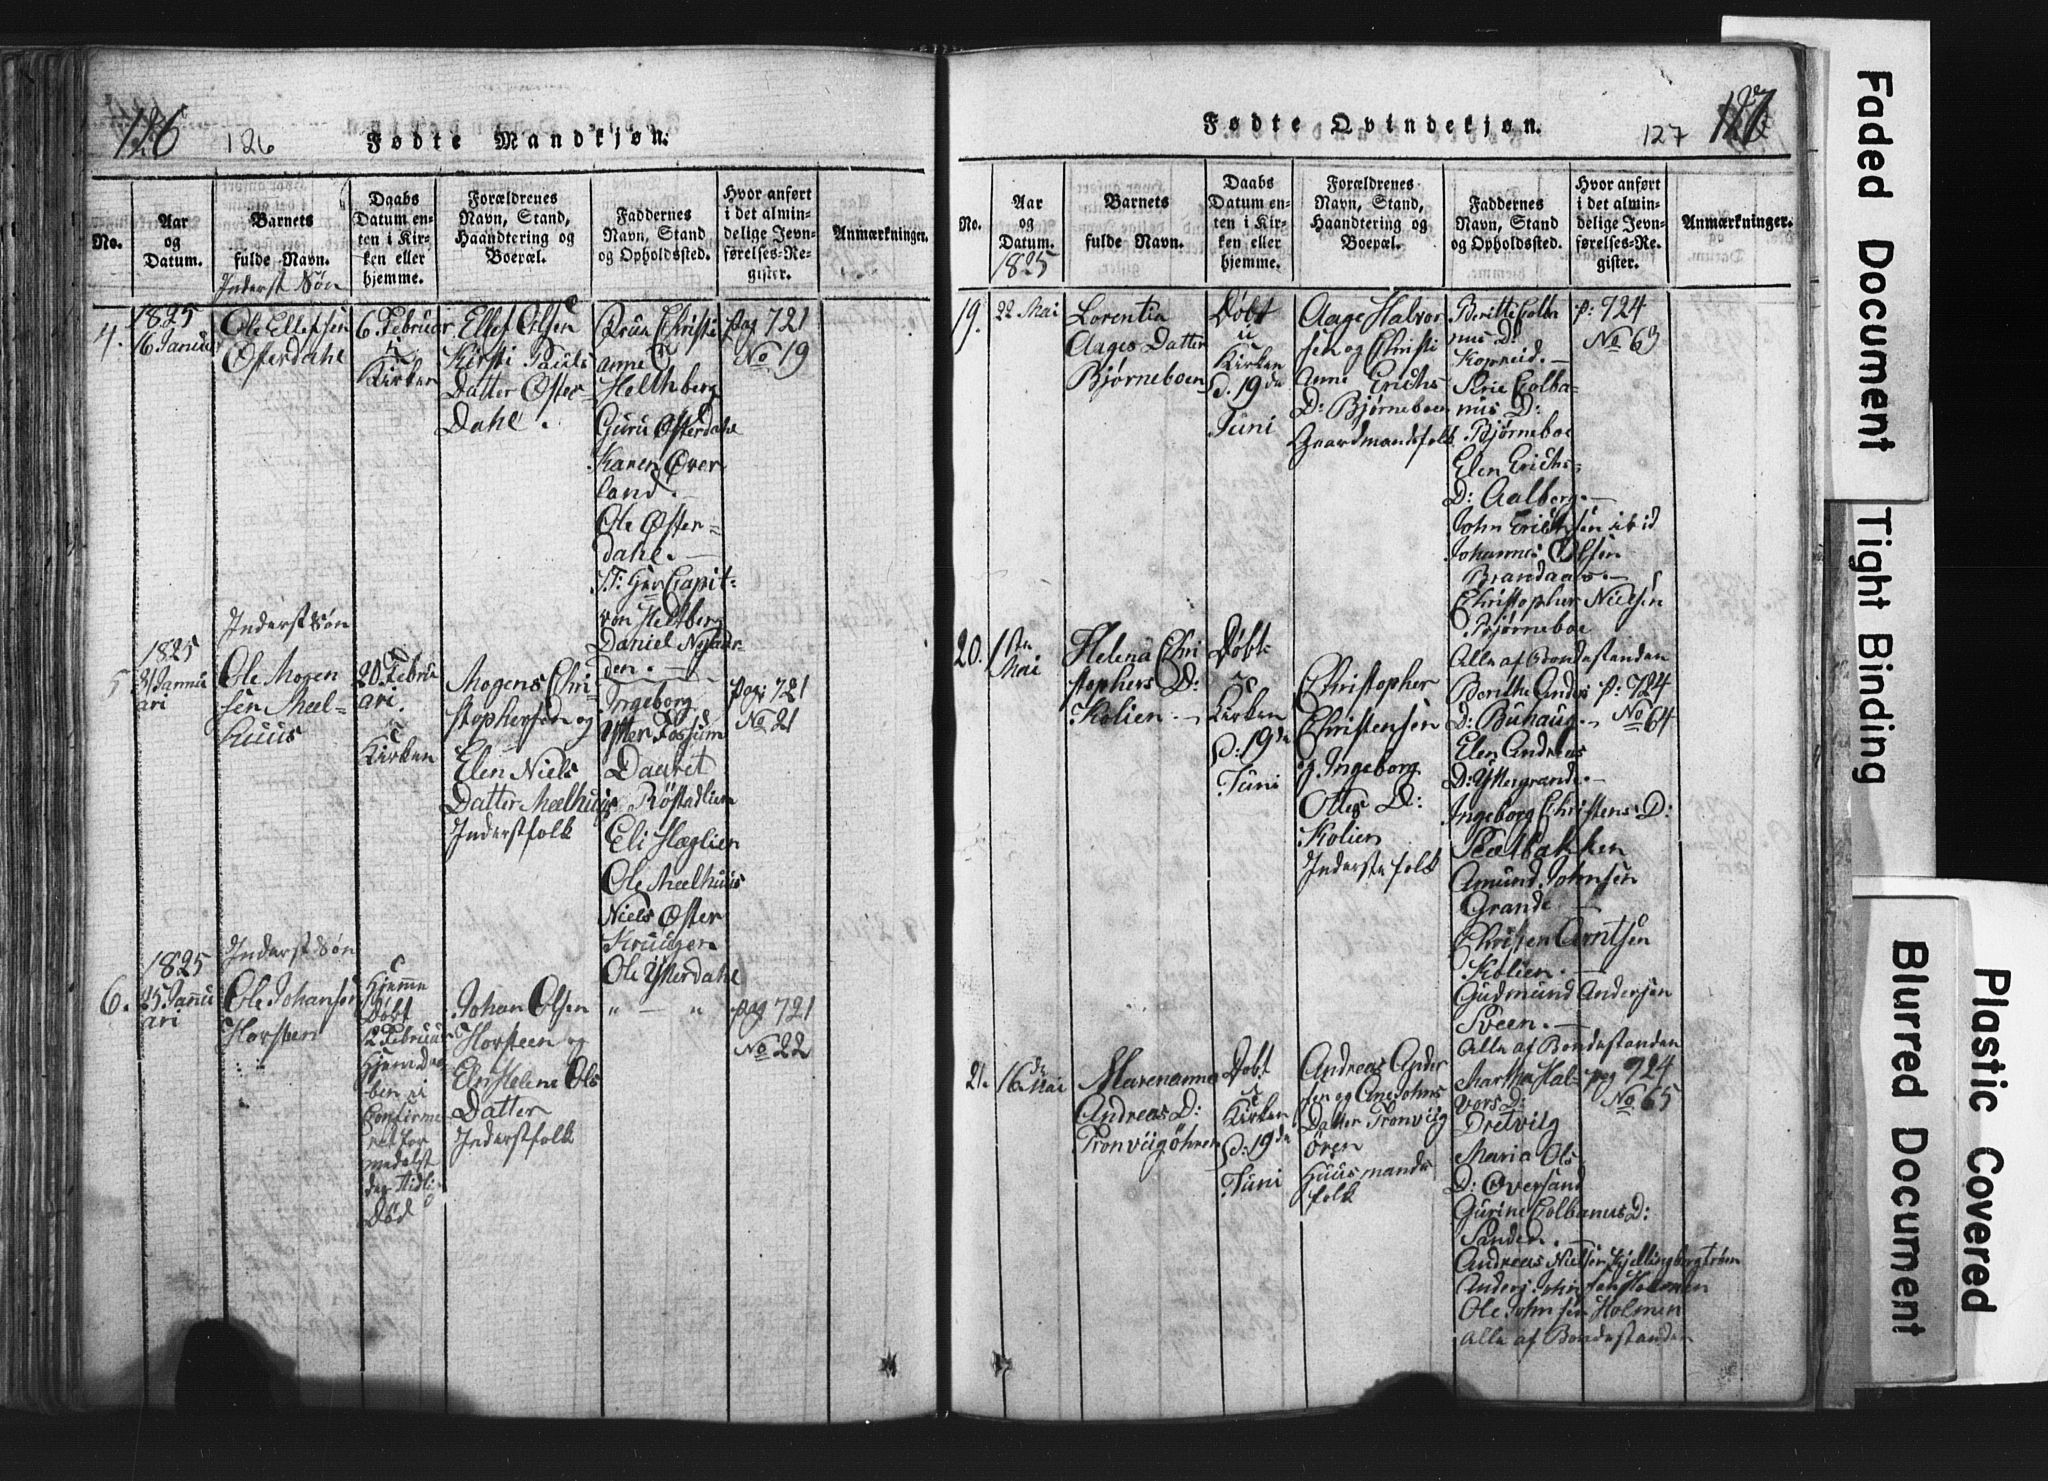 126
126
Fødte Mandkjøn.
No.
Aar
og
Datum.
Barnets
fulde Navn.
Daabs
Datum en-
ten i Kir-
ken eller
hjemme.
Forældrenes
Navn, Stand,
Haandtering og
Boepæl.
Faddernes
Navn, Stand
og Opholdssted.
Hvor anført
i det almin-
delige Jevn-
førelses-Re-
gister.
Anmærkninger.
4.
1825
16 Januar
Inderst Søn
Ole Ellefsen
Østerdahl
6 Februar
i
Kirken
Ellef Olsen
Kirsti Pauls
Datter Øster-
Dahl.
Fruu Christi
anne
Heltberg
Guru Østerdahl
Karen Over
land.
Ole Øster-
dahl.
Capit-
von Heltberg
Daniel
den.
Pag 721
No 19
5
1825
31 Januu
ari
Inderst Søn
Ole Mogen
sen Meel-
huus
20. Februu
ari.
i
Kirken
Mogens Chri-
stophersen og
Elen Niels
Datter Meelhuus
Inderstfolk
Ingeborg
Ytter Fossum
Dauret
Røstadlien
Eli Hæglien
Ole Meelhuus
Niels Øster
Kruuger
Ole Ytterdahl
Pag: 721
No 21
6.
1825
25 Januu
ari
Inderst Søn
Ole Johansen
Horsteen
Hjemme
Døbt
12 Februar
Hjemdaa
ben i
Confirme
ret for
medelst
den Tidli-
Død
Johan Olsen
Horsteen og
Elen Helene Ols
Datter
Inderstfolk
" — "
Pag 721
No 22
Fødte Qvindekjøn.
127
127
No.
Aar
og
Datum.
1825
Barnets
fulde Navn.
Daabs
Datum en-
ten i Kir-
ken eller
hjemme.
Forældrenes
Navn, Stand,
Haandtering og
Boepæl.
Faddernes
Navn, Stand
og Opholdssted.
Hvor anført
i det almin-
delige Jevn-
førelses-Re-
gister.
Anmærkninger.
19.
22 Mai
Lorentia
Aages Datter
Bjørneboen
Døbt
i
Kirken
d. 19de
Juni
Aage Halvor
sen og Christi
Anne Erichs
D: Bjørneboe
Gaardmandsfolk
Beritte Colba
nus D:
Kopreid.
Siri Colba-
nus D:
Bjørneboe
Elen Erichs-
D: Aalberg.
John Erichsen ibid
Johannes Olsen
Brandaas.
Christopher Nielsen
Bjørneboe
Alle af Bondestanden
p: 924
No 63
20.
1ste
Mai
Helena Chri
stophers D:
Kolien.
Døbt
i
Kirken
d: 19de
Juni
Christopher
Christensen
og Ingeborg
Oles D:
Kolien
Inderste folk
Berithe Anders
D: Buhaug.
Elen Andreas
D: Yttergrande.
Ingeborg Christens D:
Amund Johnsen
Grande.
Christen Arntsen
Kolien.
Gudmund Andersen
Sveen.
Alle af Bondestanden
p: 724
No 64
21.
16de Mai
Marenanna
Andreas D:
Tronviigöhren
Døbt
i
Kirken
d: 19de
Juni
Andreas Ander
sen og Ane Johns
Datter Tronviig
ören
Huusmands
folk
Martha Hal-
vors D:
Dretvilg
Maria Ols
D: Oversand
Gurine Colbanus D:
Sanden.
Andreas Nielsen Kjellingbergtrøen
Anders Johnsen Holmen
Ole Johnsen Holmen
Alle af Bondestanden
pag 924
No 65
Faded Document
Tight Binding
Blurred Document
Plastic Covered